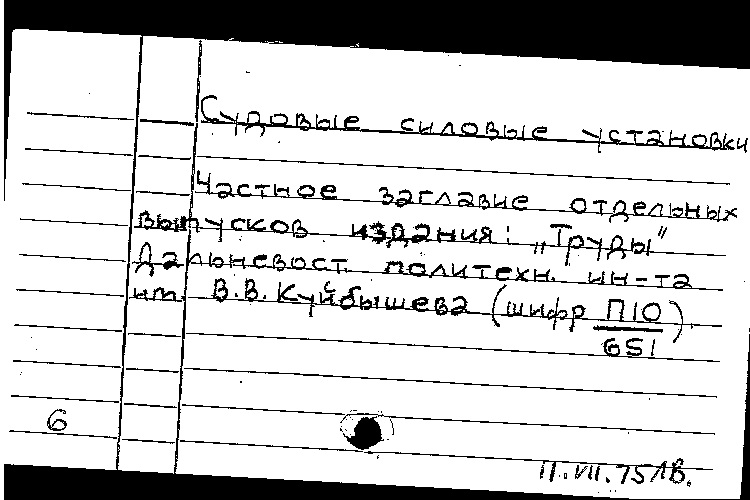 Судовые силовые установки
Частное заглавие отдельных
выпусков издания: „Труды"
Дальневост. политехн. ин-та
им. В.В. Куйбышева (шифр П10/651).
6
11.VII.75 ЛВ.